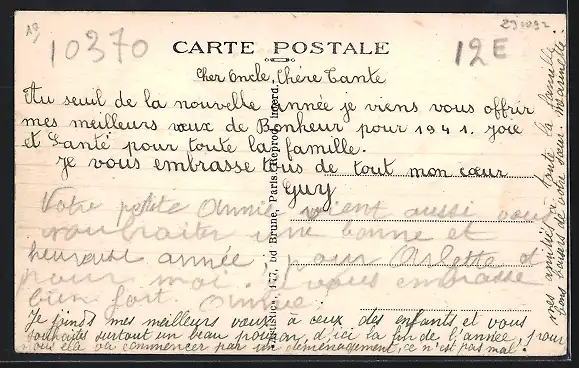 10370
CARTE POSTALE
12E
Cher Oncle, Chère Tante
Au seuil de la nouvelle année je viens vous offrir
mes meilleurs vœux de Bonheur pour 1941. Joie
et Santé pour toute la famille.
Je vous embrasse tous de tout mon cœur
Guy
Votre petite Annie vient aussi vous
souhaiter une bonne et
heureuse année, pour Arlette et
pour moi. Je vous embrasse
bien fort. Annie
Je joinds mes meilleurs vœux à ceux des enfants et vous
souhaites surtout un beau poupon, d'ici la fin de l'année, pour
vous ça va commencer par un déménagement, ce n'est pas mal.
mes amitiés à toute la famille
bons baisers de votre sœur. Marinette.
177, bd Brune, Paris. Reprod. interd.